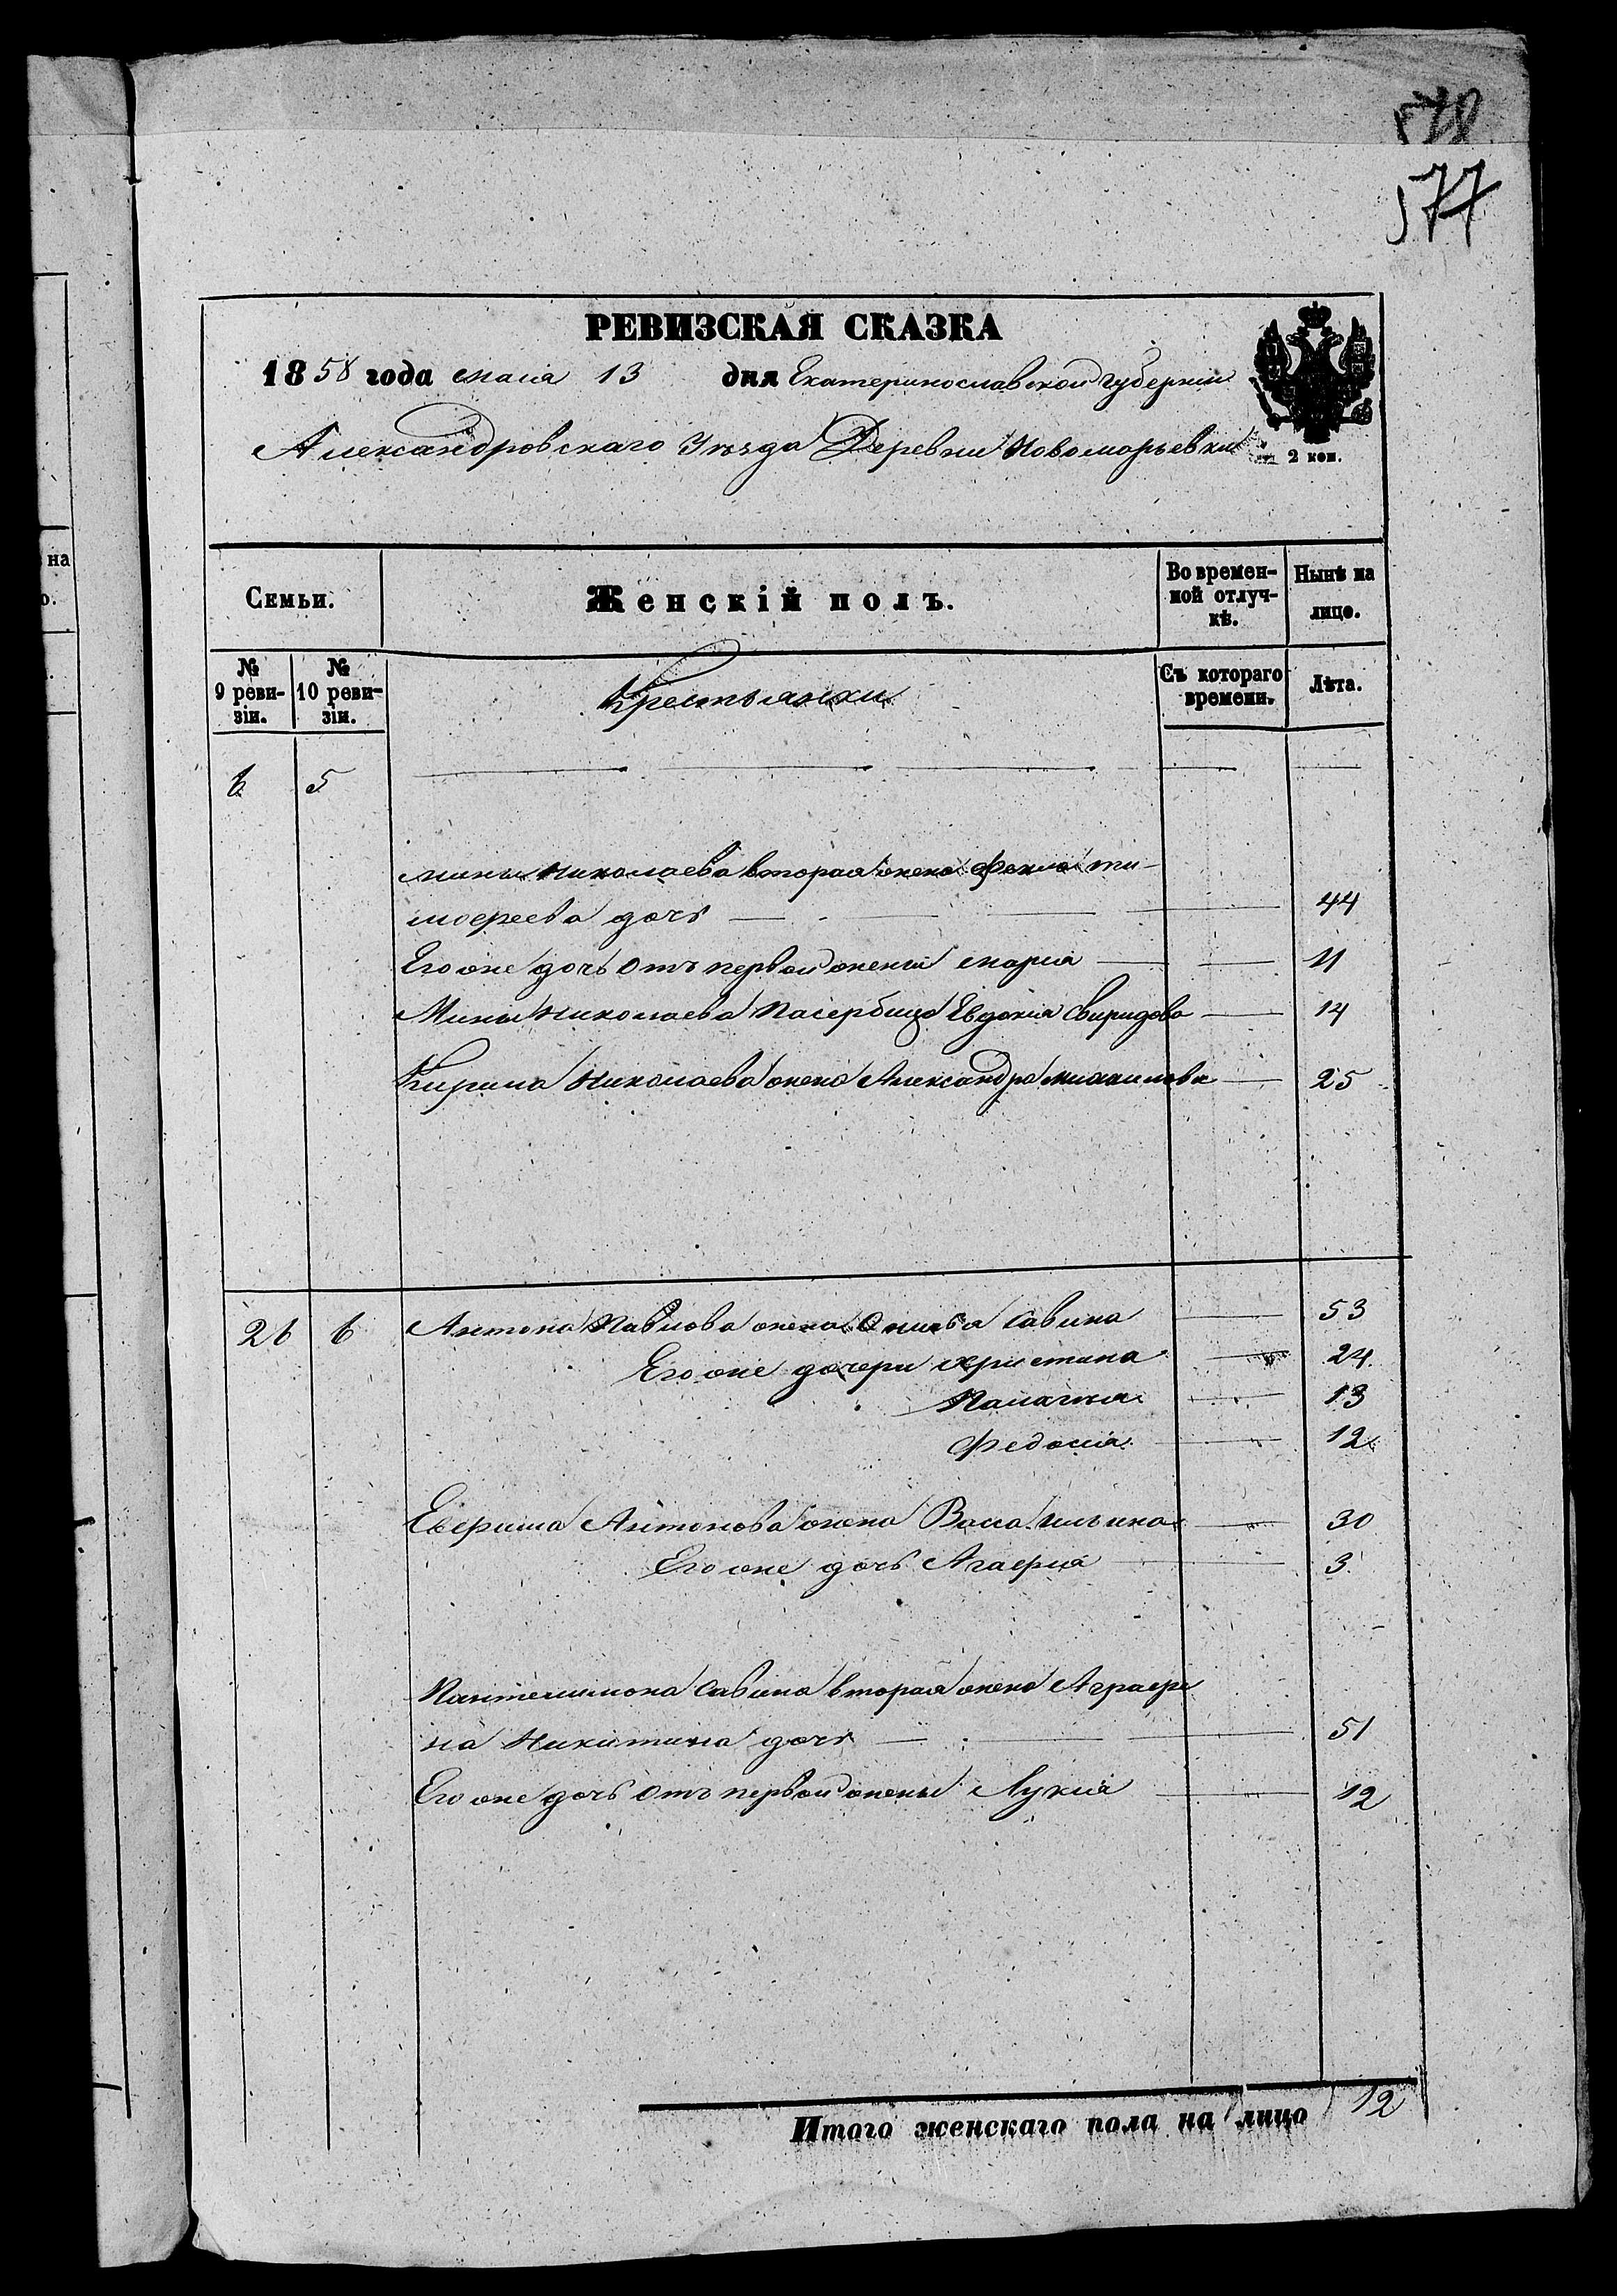 577
РЕВИЗСКАЯ СКАЗКА
1858 года мая 13 дня Екатеринославской Губернии
Александровскаго Уезда Деревни Новомарьевки
2 коп.
на
Семьи.
Женскій полъ.
Во времен-
ной отлуч-
кѣ.
Нынѣ на
лицо.
№
9 реви-
зіи.
№
10 реви-
зіи.
Крестьянки
Съ котораго
времени.
Лѣта.
6 5
Мины Николаева вторая жена Фекла Ти-
мофеева дочь 44
Его же дочь отъ первой жены Мария 11
Мины Николаева Пасербица Евдокия Свиридова 14
Кирила Николаева жена Александра Михаилова 25
26 6 Антона Павлова жена Савина 53
Его же дочери Христина 24
Палагия 13
Федосия 12
Ефрима Антонова жена Васса Ильина 30
Его же дочь Агафия 3
Пантелимона Савина вторая жена Аграфе
на Никитина дочь 51
Его же дочь отъ первой жены Лукия 12
Итого женскаго пола на лицо 12